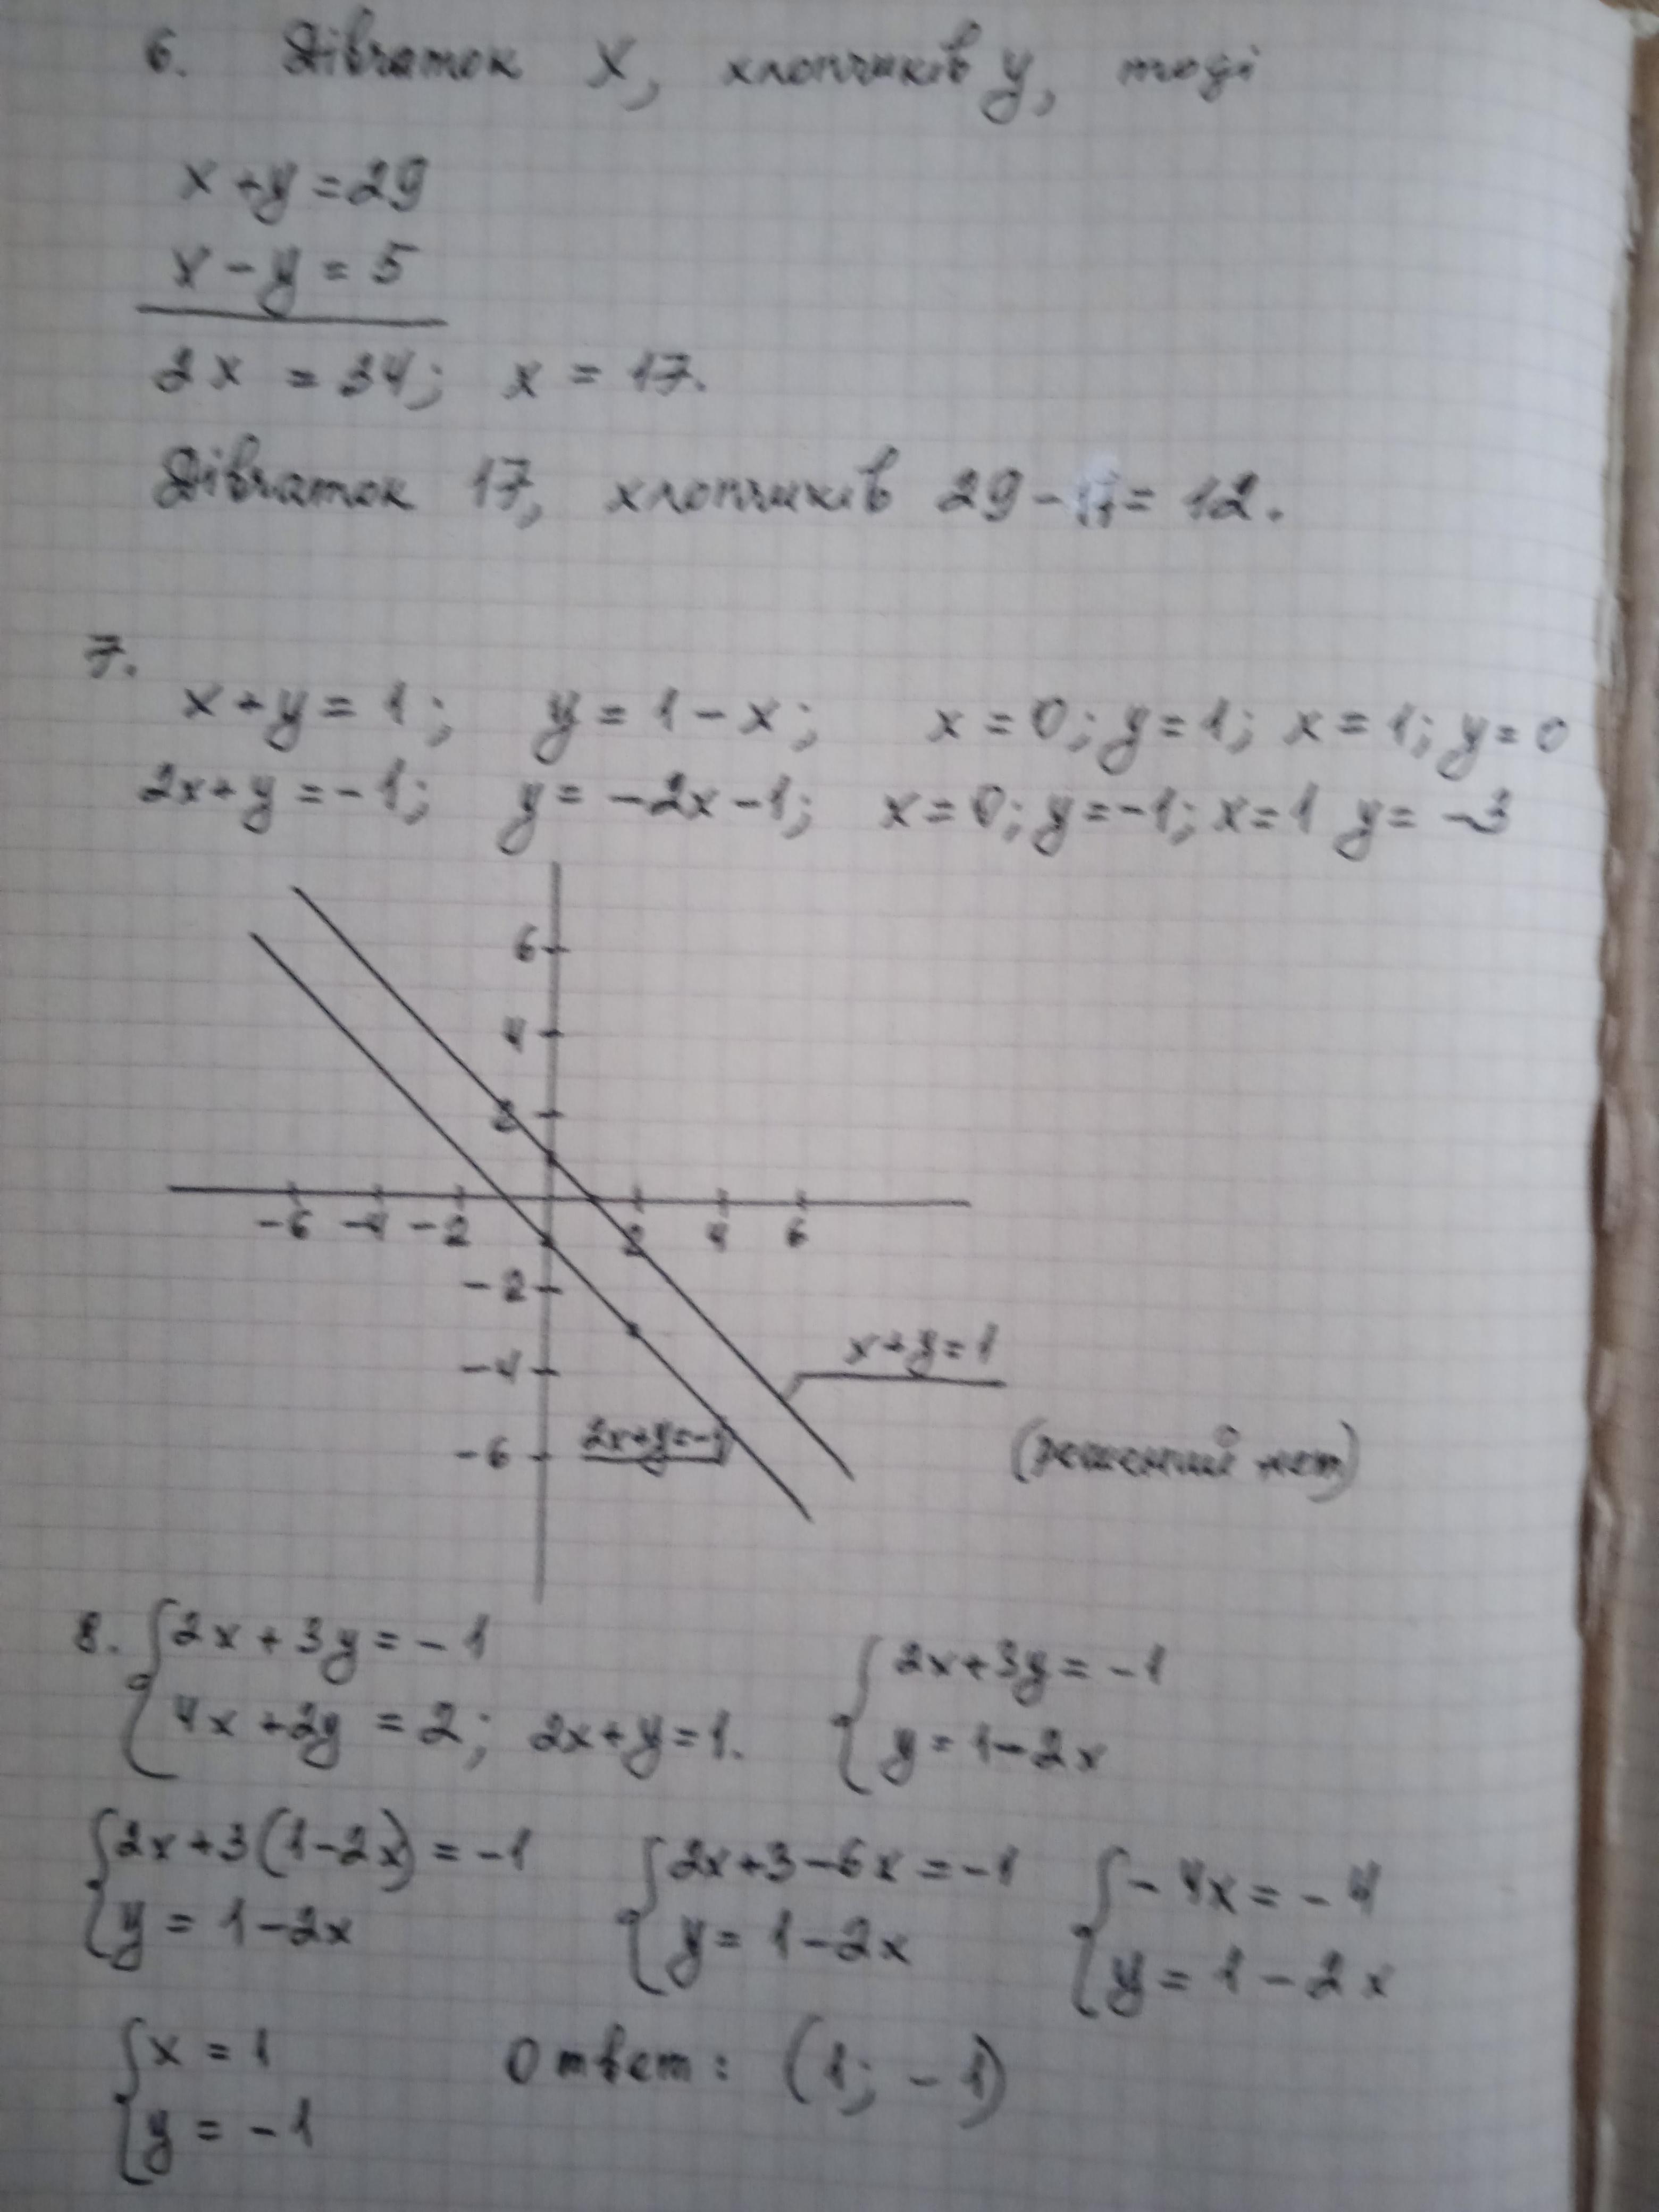 6. Дівчаток x, хлопчиків y, тоді
x + y = 29
x - y = 5
2x = 34; x = 17.
Дівчаток 17, хлопчиків 29 - 17 = 12.
7.
x + y = 1; y = 1 - x; x = 0; y = 1; x = 1; y = 0
2x + y = -1; y = -2x - 1; x = 0; y = -1; x = 1 y = -3
6
4
2
-6 -4 -2 2 4 6
-2
x + y = 1
-4
2x + y = -1
-6
(решений нет)
8. { 2x + 3y = -1
4x + 2y = 2; 2x + y = 1.
{ 2x + 3y = -1
y = 1 - 2x
{ 2x + 3(1 - 2x) = -1
y = 1 - 2x
{ 2x + 3 - 6x = -1
y = 1 - 2x
{ -4x = -4
y = 1 - 2x
{ x = 1
y = -1
Ответ: (1; -1)